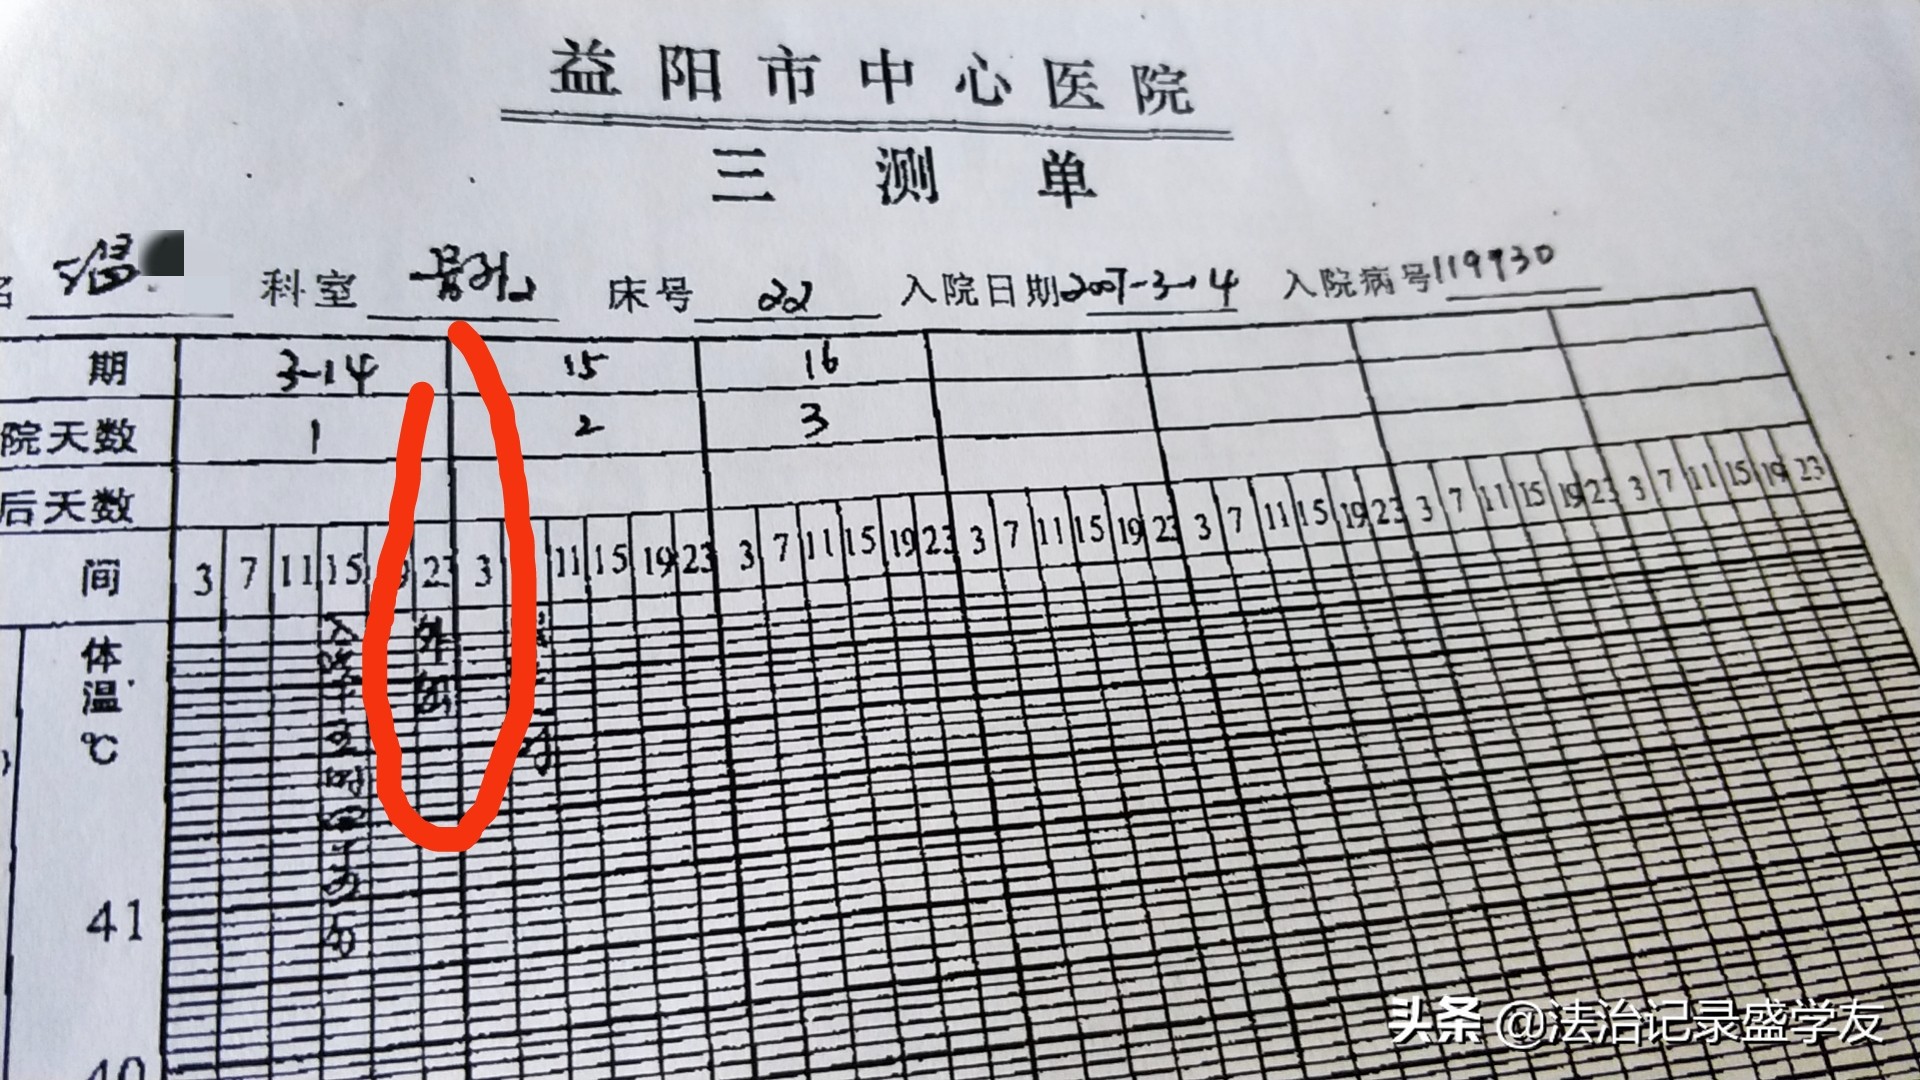 益阳市中心医院
三测单
温 科室 普外 床号 22 入院日期 2007-3-14 入院病号 119930
期 3-14 15 16
院天数 1 2 3
后天数
间 3 7 11 15 23 3 11 15 19 23 3 7 11 15 19 23 3 7 11 15 19 23 3 7 11 15 19 23 3 7 11 15 19 23 3 7 11 15 19 23
体温℃
入院
外出
41
40
头条 @法治记录盛学友